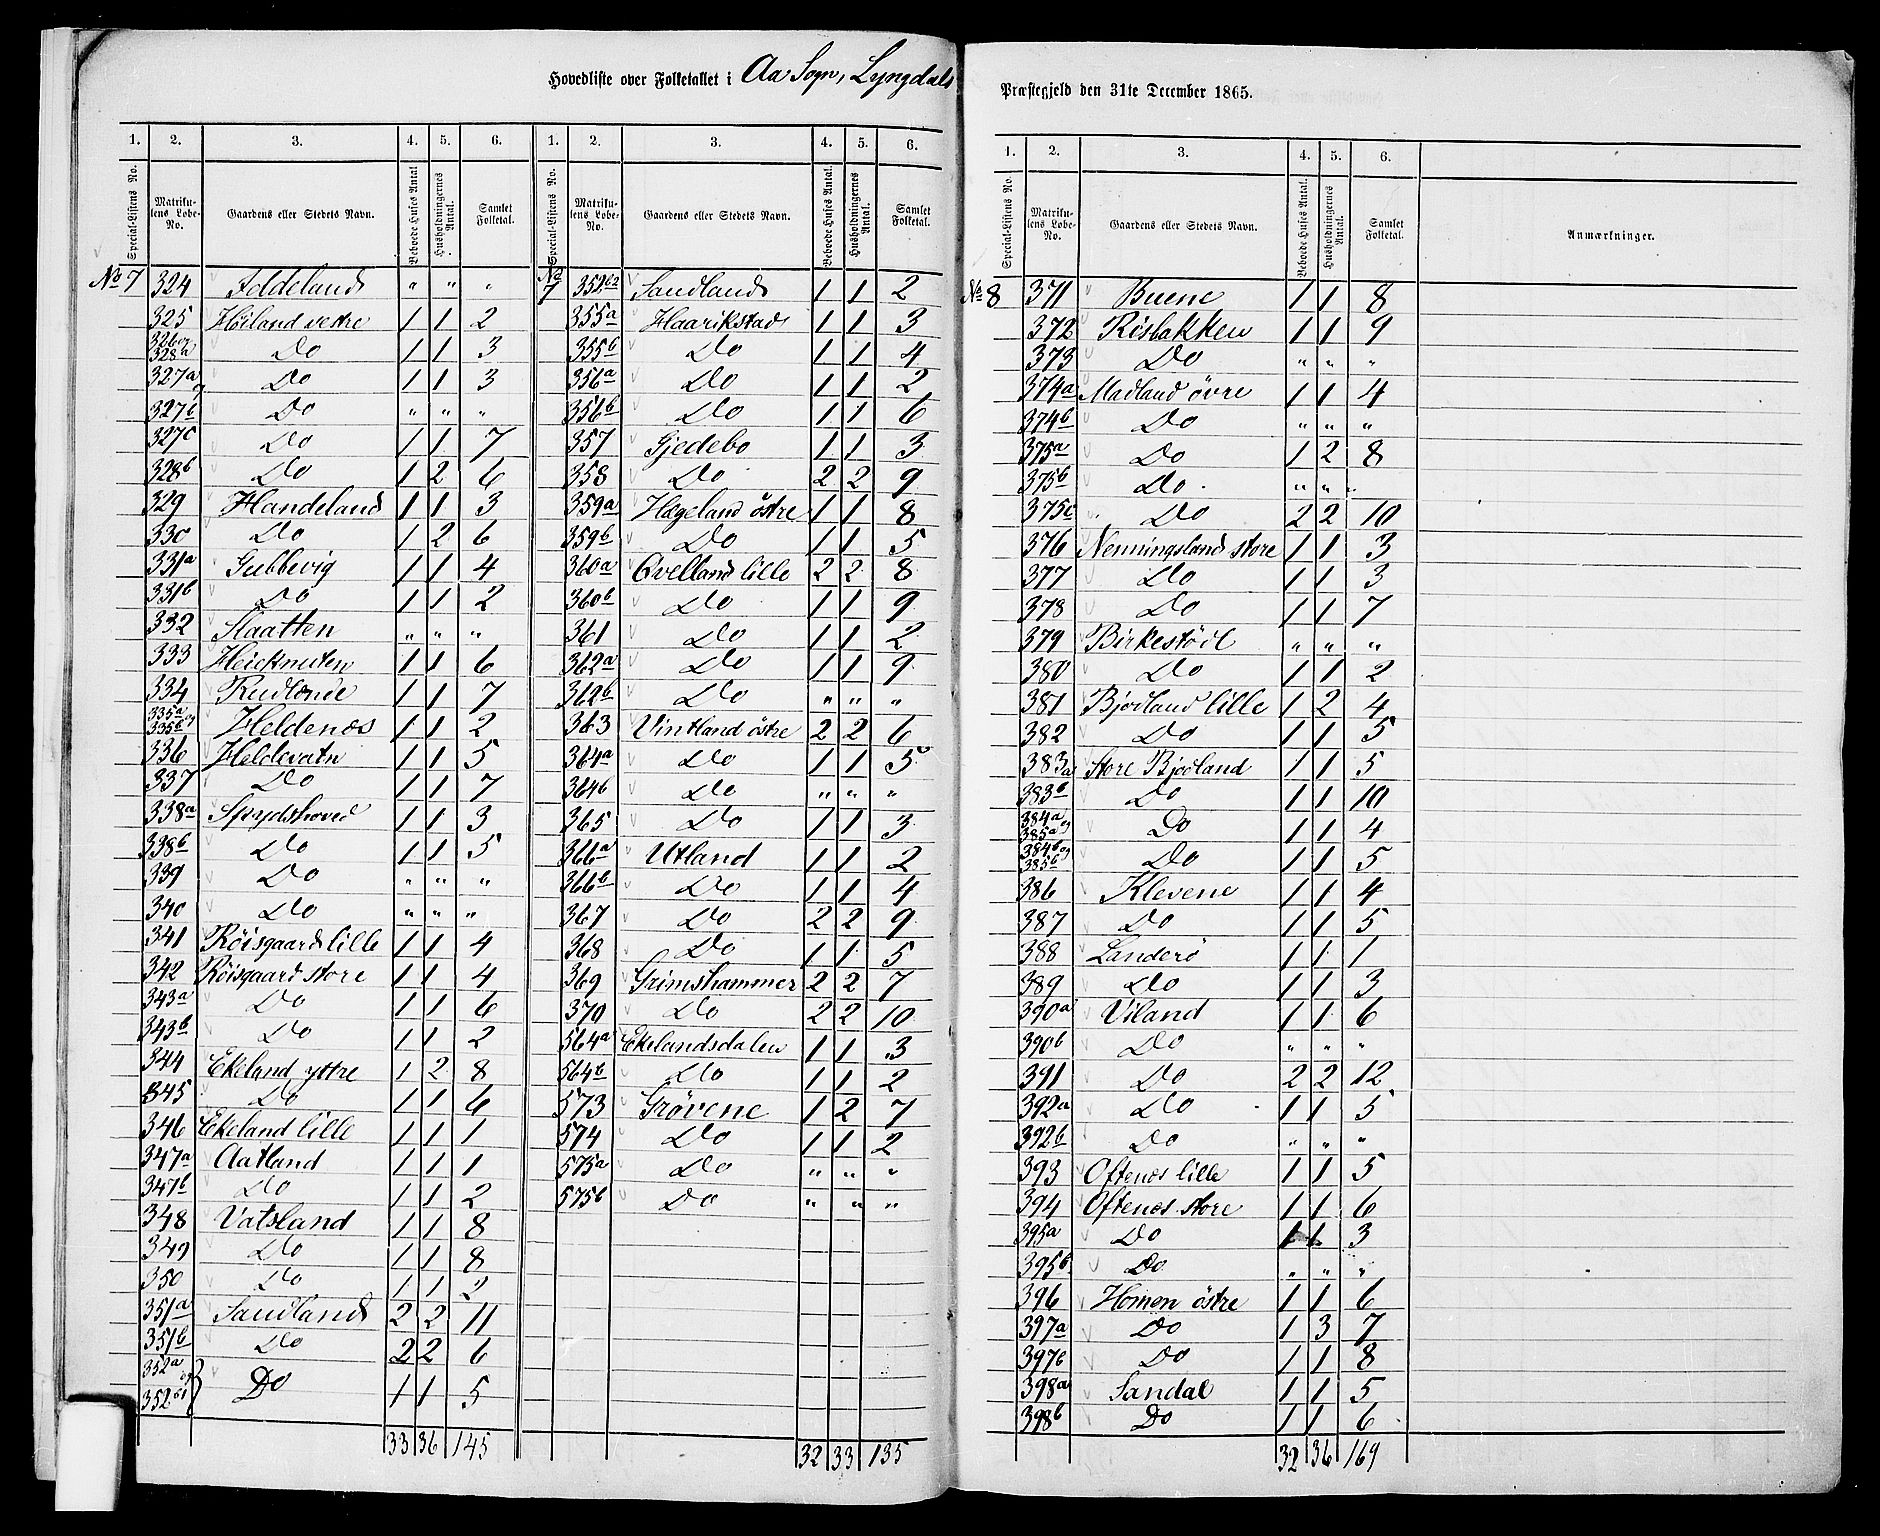 Hovedliste over Folketallet i Aa Sogn, Lyngdals
1. 2. 3. 4. 5. 6. 1. 2. 3. 4. 5. 6.
Special-Listens No. Matrikulens Løbe-No. Gaardens eller Stedets Navn. Beboede Huses Antal. Husholdningernes Antal. Samlet Folketal. Special-Listens No. Matrikulens Løbe-No. Gaardens eller Stedets Navn. Beboede Huses Antal. Husholdningernes Antal. Samlet Folketal.
No 7 324 Feldeland " " "
325 Høiland vestre 1 1 2
326 og 328a Do 1 1 3
327a og Do 1 1 3
327b Do " " "
327c Do 1 1 7
328b Do 1 2 6
329 Handeland 1 1 3
330 Do 1 2 6
331a Gubbevig 1 1 4
331b Do 1 1 2
332 Slaatten " " "
333 Heieknuten 1 1 6
334 Rudlænde 1 1 7
335a og 335b Heldenæs 1 1 2
336 Heldevatn 1 1 5
337 Do 1 1 7
338a Spydshoved 1 1 3
338b Do 1 1 5
339 Do " " "
340 Do " " "
341 Røisgaard lille 1 1 4
342 Røisgaard store 1 1 4
343a Do 1 1 6
343b Do 1 1 2
344 Ekeland yttre 1 2 8
345 Do 1 1 6
346 Ekeland lille 1 1 1
347a Aatland 1 1 1
347b Do 1 1 2
348 Vatsland 1 1 8
349 Do 1 1 8
350 Do 1 1 2
351a Sandland 2 2 11
351b Do 2 2 6
352a og 352b1 Do 1 1 5
33 36 145
No 7 352b2 Sandland 1 1 2
355a Haarikstad 1 1 3
355b Do 1 1 4
356a Do 1 1 2
356b Do 1 1 6
357 Gjedebo 1 1 3
358 Do 2 2 9
359a Hægeland østre 1 1 8
359b Do 1 1 5
360a Qvelland lille 2 2 8
360b Do 1 1 9
361 Do 1 1 2
362a Do 1 1 9
362b Do " " "
363 Vintland østre 2 2 6
364a Do 1 1 5
364b Do " " "
365 Do 1 1 3
366a Utland 1 1 2
366b Do 1 1 4
367 Do 2 2 9
368 Do 1 1 5
369 Grimshammer 2 2 7
370 Do 2 2 10
564a Ekelandsdalen 1 1 3
564b Do 1 1 2
573 Grøvene 1 2 7
574 Do 1 1 2
575a Do " " "
575b Do " " "
32 33 135
Præstegjeld den 31te December 1865.
1. 2. 3. 4. 5. 6.
Special-Listens No. Matrikulens Løbe-No. Gaardens eller Stedets Navn. Beboede Huses Antal. Husholdningernes Antal. Samlet Folketal. Anmærkninger.
No 8 371 Buene 1 1 8
372 Risbakken 1 1 9
373 Do " " "
374a Madland øvre 1 1 4
374b Do " " "
375a Do 1 2 8
375b Do " " "
375c Do 2 2 10
376 Nenningsland store 1 1 3
377 Do 1 1 3
378 Do 1 1 7
379 Birkestøl " " "
380 Do 1 1 2
381 Bjodland lille 1 2 4
382 Do 1 1 5
383a Store Bjodland 1 1 5
383b Do 1 1 10
384a og 385a Do 1 1 4
384b og 385b Do 1 1 5
386 Klevene 1 1 4
387 Do 1 1 5
388 Landerø 1 1 1
389 Do 1 1 3
390a Viland 1 1 6
390b Do " " "
391 Do 2 2 12
392a Do 1 1 5
392b Do " " "
393 Oftenes lille 1 1 5
394 Oftenes store 1 1 6
395a Do 1 1 3
395b Do " " "
396 Homen østre 1 1 6
397a Do 1 3 7
397b Do 1 1 8
398a Sandal 1 1 5
398b Do 1 1 6
32 36 169